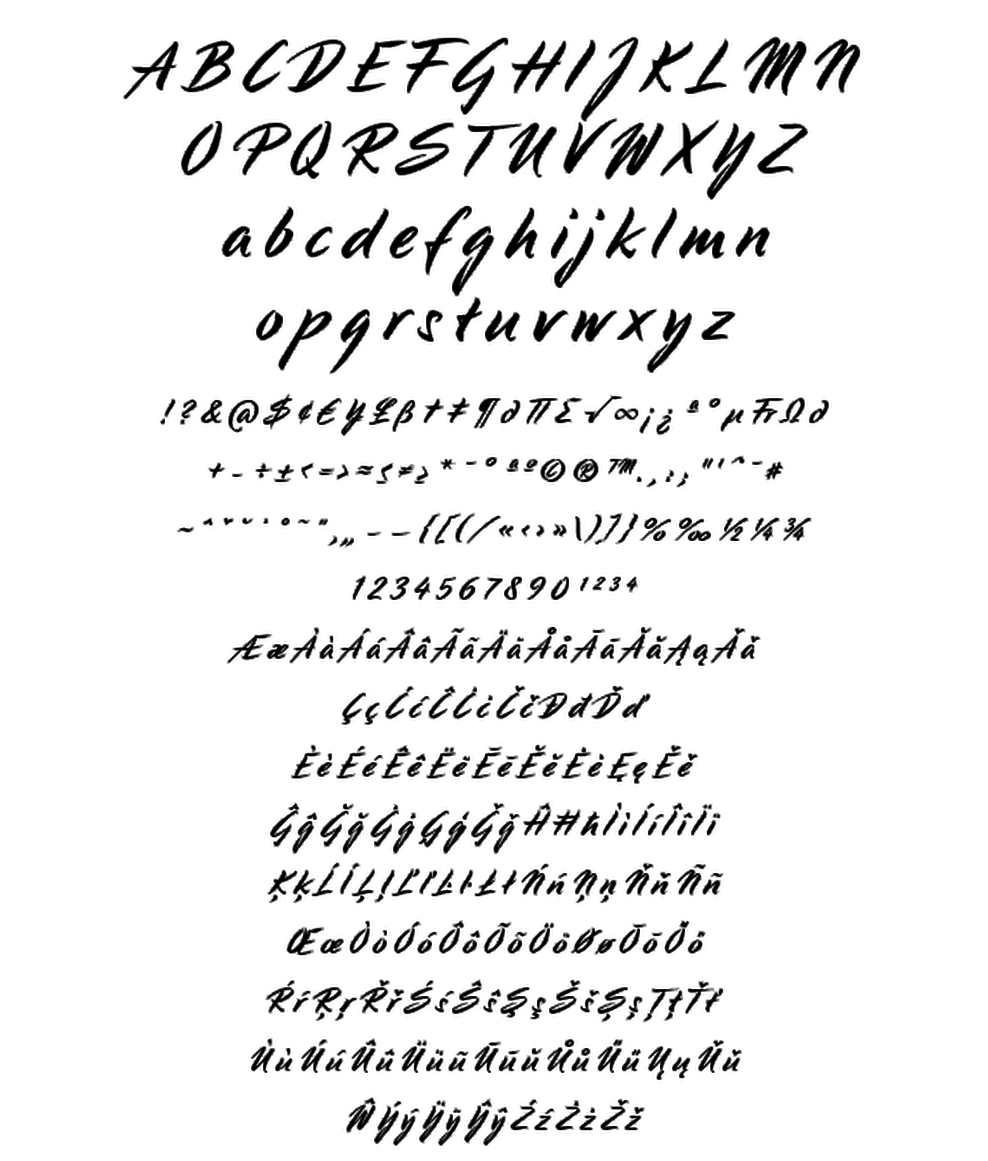 A B C D E F G H I J K L M N
O P Q R S T U V W X Y Z
a b c d e f g h i j k l m n
o p q r s t u v w x y z
! ? & @ $ ¢ € ¥ £ β † ‡ ¶ ∂ Π Σ √ ∞ ¡ ¿ ª º µ ₣ Ω ∂
+ - ÷ ± < = > ≈ ≤ ≠ ≥ * - º ª º © ® ™ . , : ; " ' ^ - #
~ ˆ ˇ ˘ ˙ ° ~ " , „ – — { [ ( / « ‹ › » \ ) ] } % ‰ ½ ¼ ¾
1 2 3 4 5 6 7 8 9 0 ¹ ² ³ ⁴
Æ æ À à Á á Â â Ã ã Ä ä Å å Ā ā Ă ă Ą ą Ǎ ǎ
Ç ç Ć ć Ĉ Ċ ċ Č č Đ đ Ď ď
È è É é Ê ê Ë ë Ē ē Ĕ ĕ Ė ė Ę ę Ě ě
Ĝ ĝ Ğ ğ Ġ ġ Ģ ģ Ǧ ǧ Ĥ Ħ ħ Ì ì Í í Î î Ï ï
Ķ ķ Ĺ ĺ Ļ ļ Ľ ľ Ŀ ŀ Ł ł Ń ń Ņ ņ Ň ň Ñ ñ
Œ œ Ò ò Ó ó Ô ô Õ õ Ö ö Ø ø Ō ō Ő ő
Ŕ ŕ Ŗ ŗ Ř ř Ś ś Ŝ ŝ Ş ş Š š Ș ș Ţ ţ Ť ť
Ù ù Ú ú Û û Ü ü ũ Ū ū ŭ Ů ů Ű ű Ų ų Ǔ ǔ
Ŵ Ý ý Ÿ ÿ Ŷ ŷ Ź ź Ż ż Ž ž